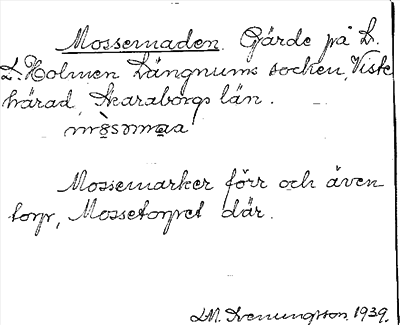 Mossemaden. Gärde på L.
L. Holmen Längnums socken, Viste
härad, Skaraborgs län.
Mossemarker förr och även
torp, Mossetorpet där.
1939.